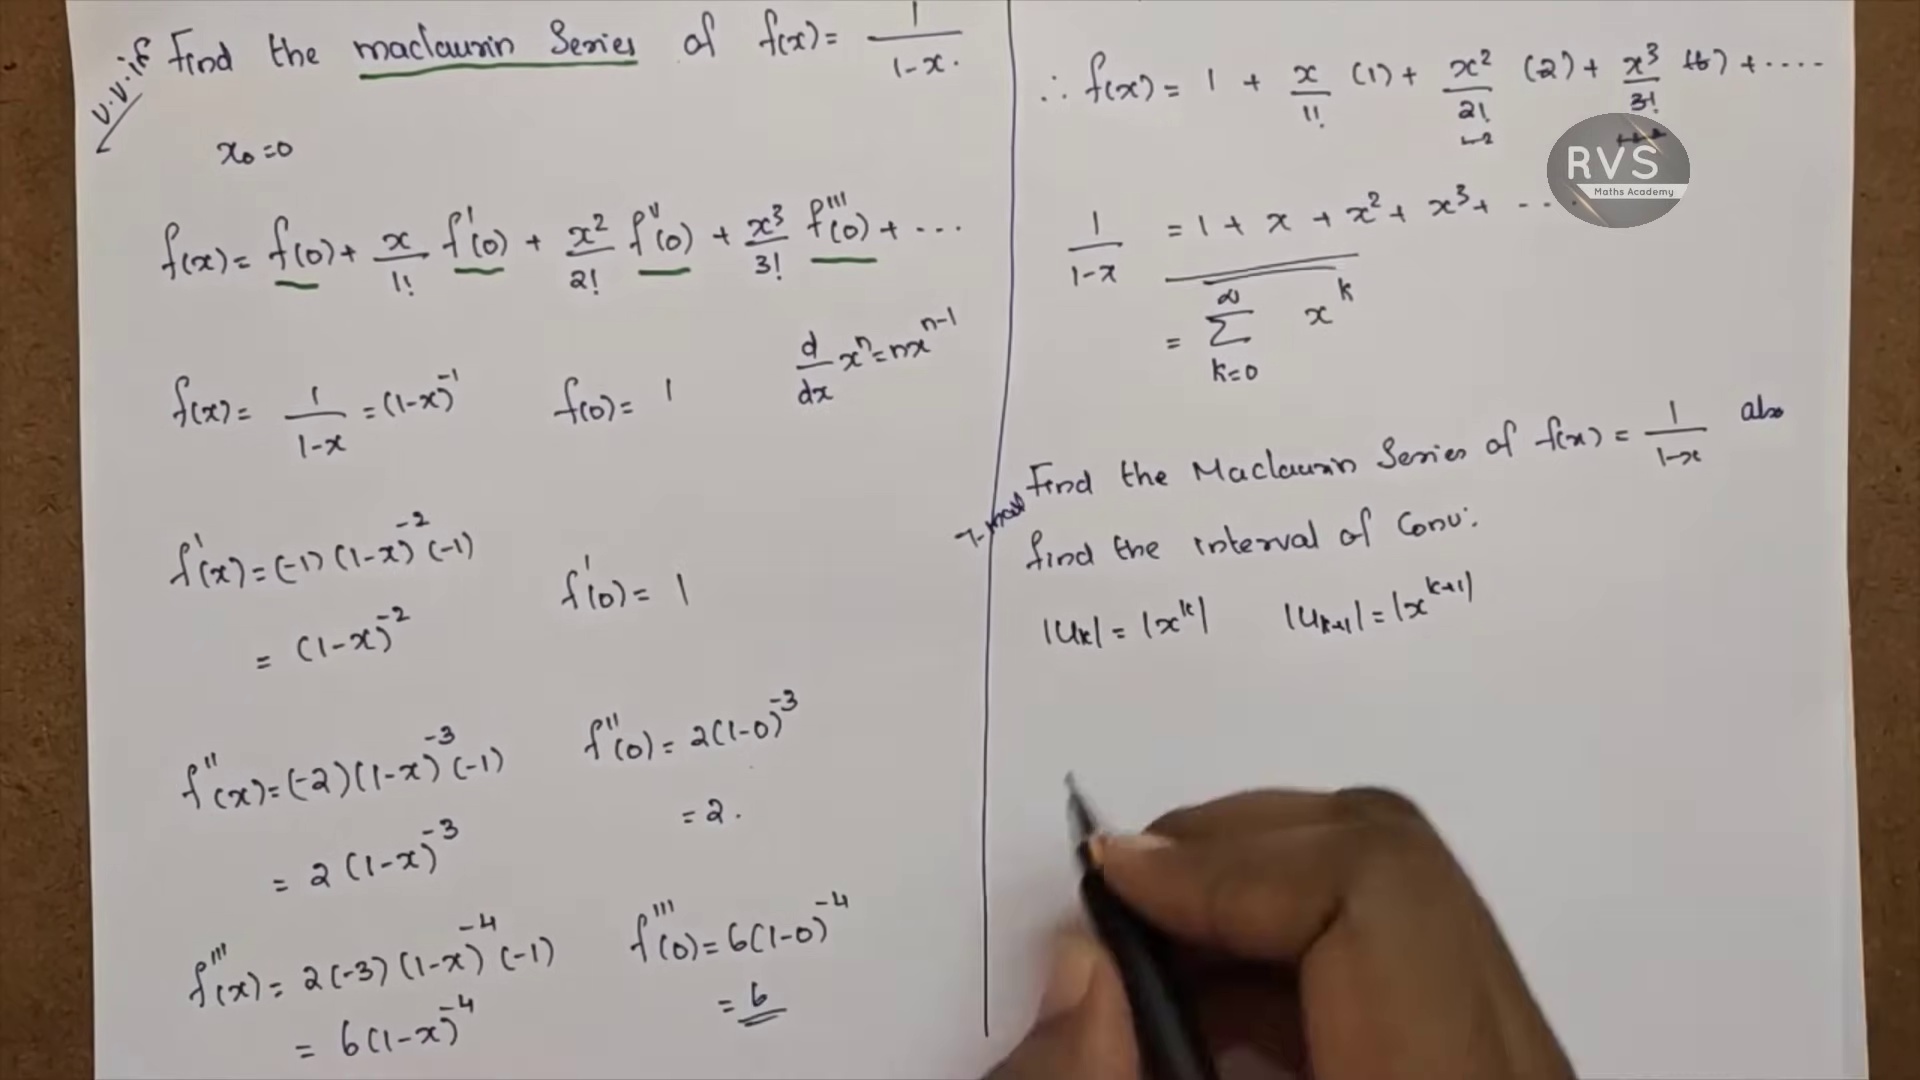 v.v.if Find the maclaurin Series of f(x) = 1/(1-x).
x₀ = 0
f(x) = f(0) + x/1! f'(0) + x²/2! f''(0) + x³/3! f'''(0) + ...
d/dx xⁿ = nxⁿ⁻¹
f(x) = 1/(1-x) = (1-x)⁻¹ f(0) = 1
f'(x) = (-1)(1-x)⁻²(-1)
= (1-x)⁻² f'(0) = 1
f''(x) = (-2)(1-x)⁻³(-1) f''(0) = 2(1-0)⁻³
= 2(1-x)⁻³ = 2.
f'''(x) = 2(-3)(1-x)⁻⁴(-1) f'''(0) = 6(1-0)⁻⁴
= 6(1-x)⁻⁴ = 6
∴ f(x) = 1 + x/1! (1) + x²/2! (2) + x³/3! (6) + ....
RVS
Maths Academy
1/(1-x) = 1 + x + x² + x³ + ...
= ∑_{k=0}^{∞} x^k
Find the Maclaurin Series of f(x) = 1/(1-x) also
find the interval of Conv:
|U_k| = |x^k| |U_{k+1}| = |x^{k+1}|